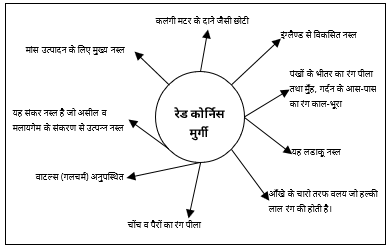 कलंगी मटर के दाने जैसी छोटी
मांस उत्पादन के लिए मुख्य नस्ल
इंग्लैण्ड से विकसित नस्ल
पंखों के भीतर का रंग पीला
तथा मुँह, गर्दन के आस-पास
का रंग काल-भूरा
रेड कोर्निस
मुर्गी
यह संकर नस्ल है जो असील व
मलायगेम के संकरण से उत्पन्न नस्ल
यह लडाकू नस्ल
वाटल्स (गलचर्म) अनुपस्थित
आँखे के चारो तरफ वलय जो हल्की
लाल रंग की होती है।
चोंच व पैरों का रंग पीला